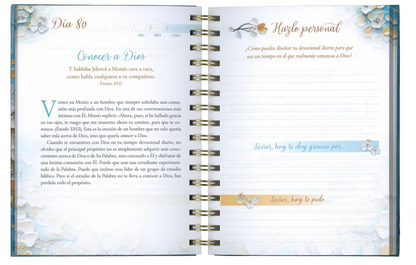 Día 80
DÍA MES AÑO
Conocer a Dios
Y hablaba Jehová a Moisés cara a cara,
como habla cualquiera a su compañero.
Éxodo 33:11
Vemos en Moisés a un hombre que siempre anhelaba una comu-
nión más profunda con Dios. En una de sus conversaciones más
íntimas con Él, Moisés suplicó: «Ahora, pues, si he hallado gracia
en tus ojos, te ruego que me muestres ahora tu camino, para que te co-
nozca» (Éxodo 33:13). Esta es la oración de un hombre que no solo quería
saber más acerca de Dios, sino que quería conocer a Dios.
Cuando te encuentres con Dios en tu tiempo devocional diario, no
olvides que el principal propósito no es simplemente adquirir más cono-
cimiento acerca de Dios o de Su Palabra, sino conocerlo a Él y disfrutar de
una íntima comunión con Él. Puede que seas una estudiante experimen-
tada de la Palabra. Puede que incluso seas líder de un grupo de estudio
bíblico. Pero si el estudio de la Palabra no te lleva a conocer a Dios, has
perdido todo el propósito.
Hazlo personal
¿Cómo puedes diseñar tu devocional diario para que
sea un tiempo en el que realmente conozcas a Dios?
Señor, hoy te doy gracias por...
Señor, hoy te pido...